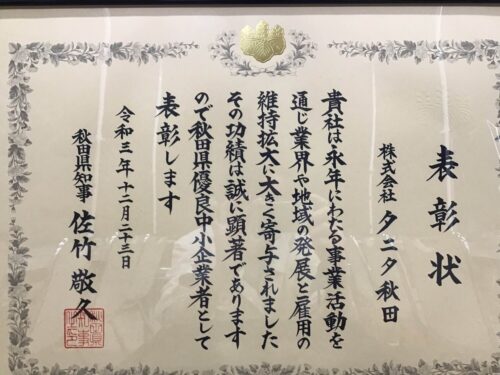 表彰状
株式会社 タニタ秋田
貴社は永年にわたる事業活動を
通じ業界や地域の発展と雇用の
維持拡大に大きく寄与されました
その功績は誠に顕著であります
ので秋田県優良中小企業者として
表彰します
令和三年十二月二十三日
秋田県知事 佐竹敬久